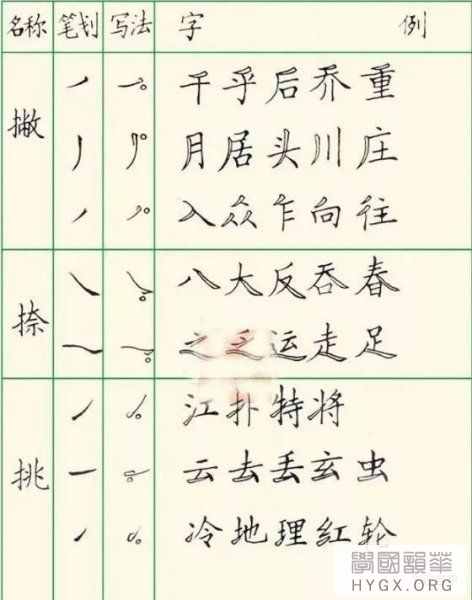 名称 笔划 写法 字 例
撇
千乎后乔重
月居头川庄
入众乍向往
捺
八大反吞春
之乏运走足
挑
江扑特将
云去丢玄虫
冷地理红轮
學國韻華
HYGX.ORG